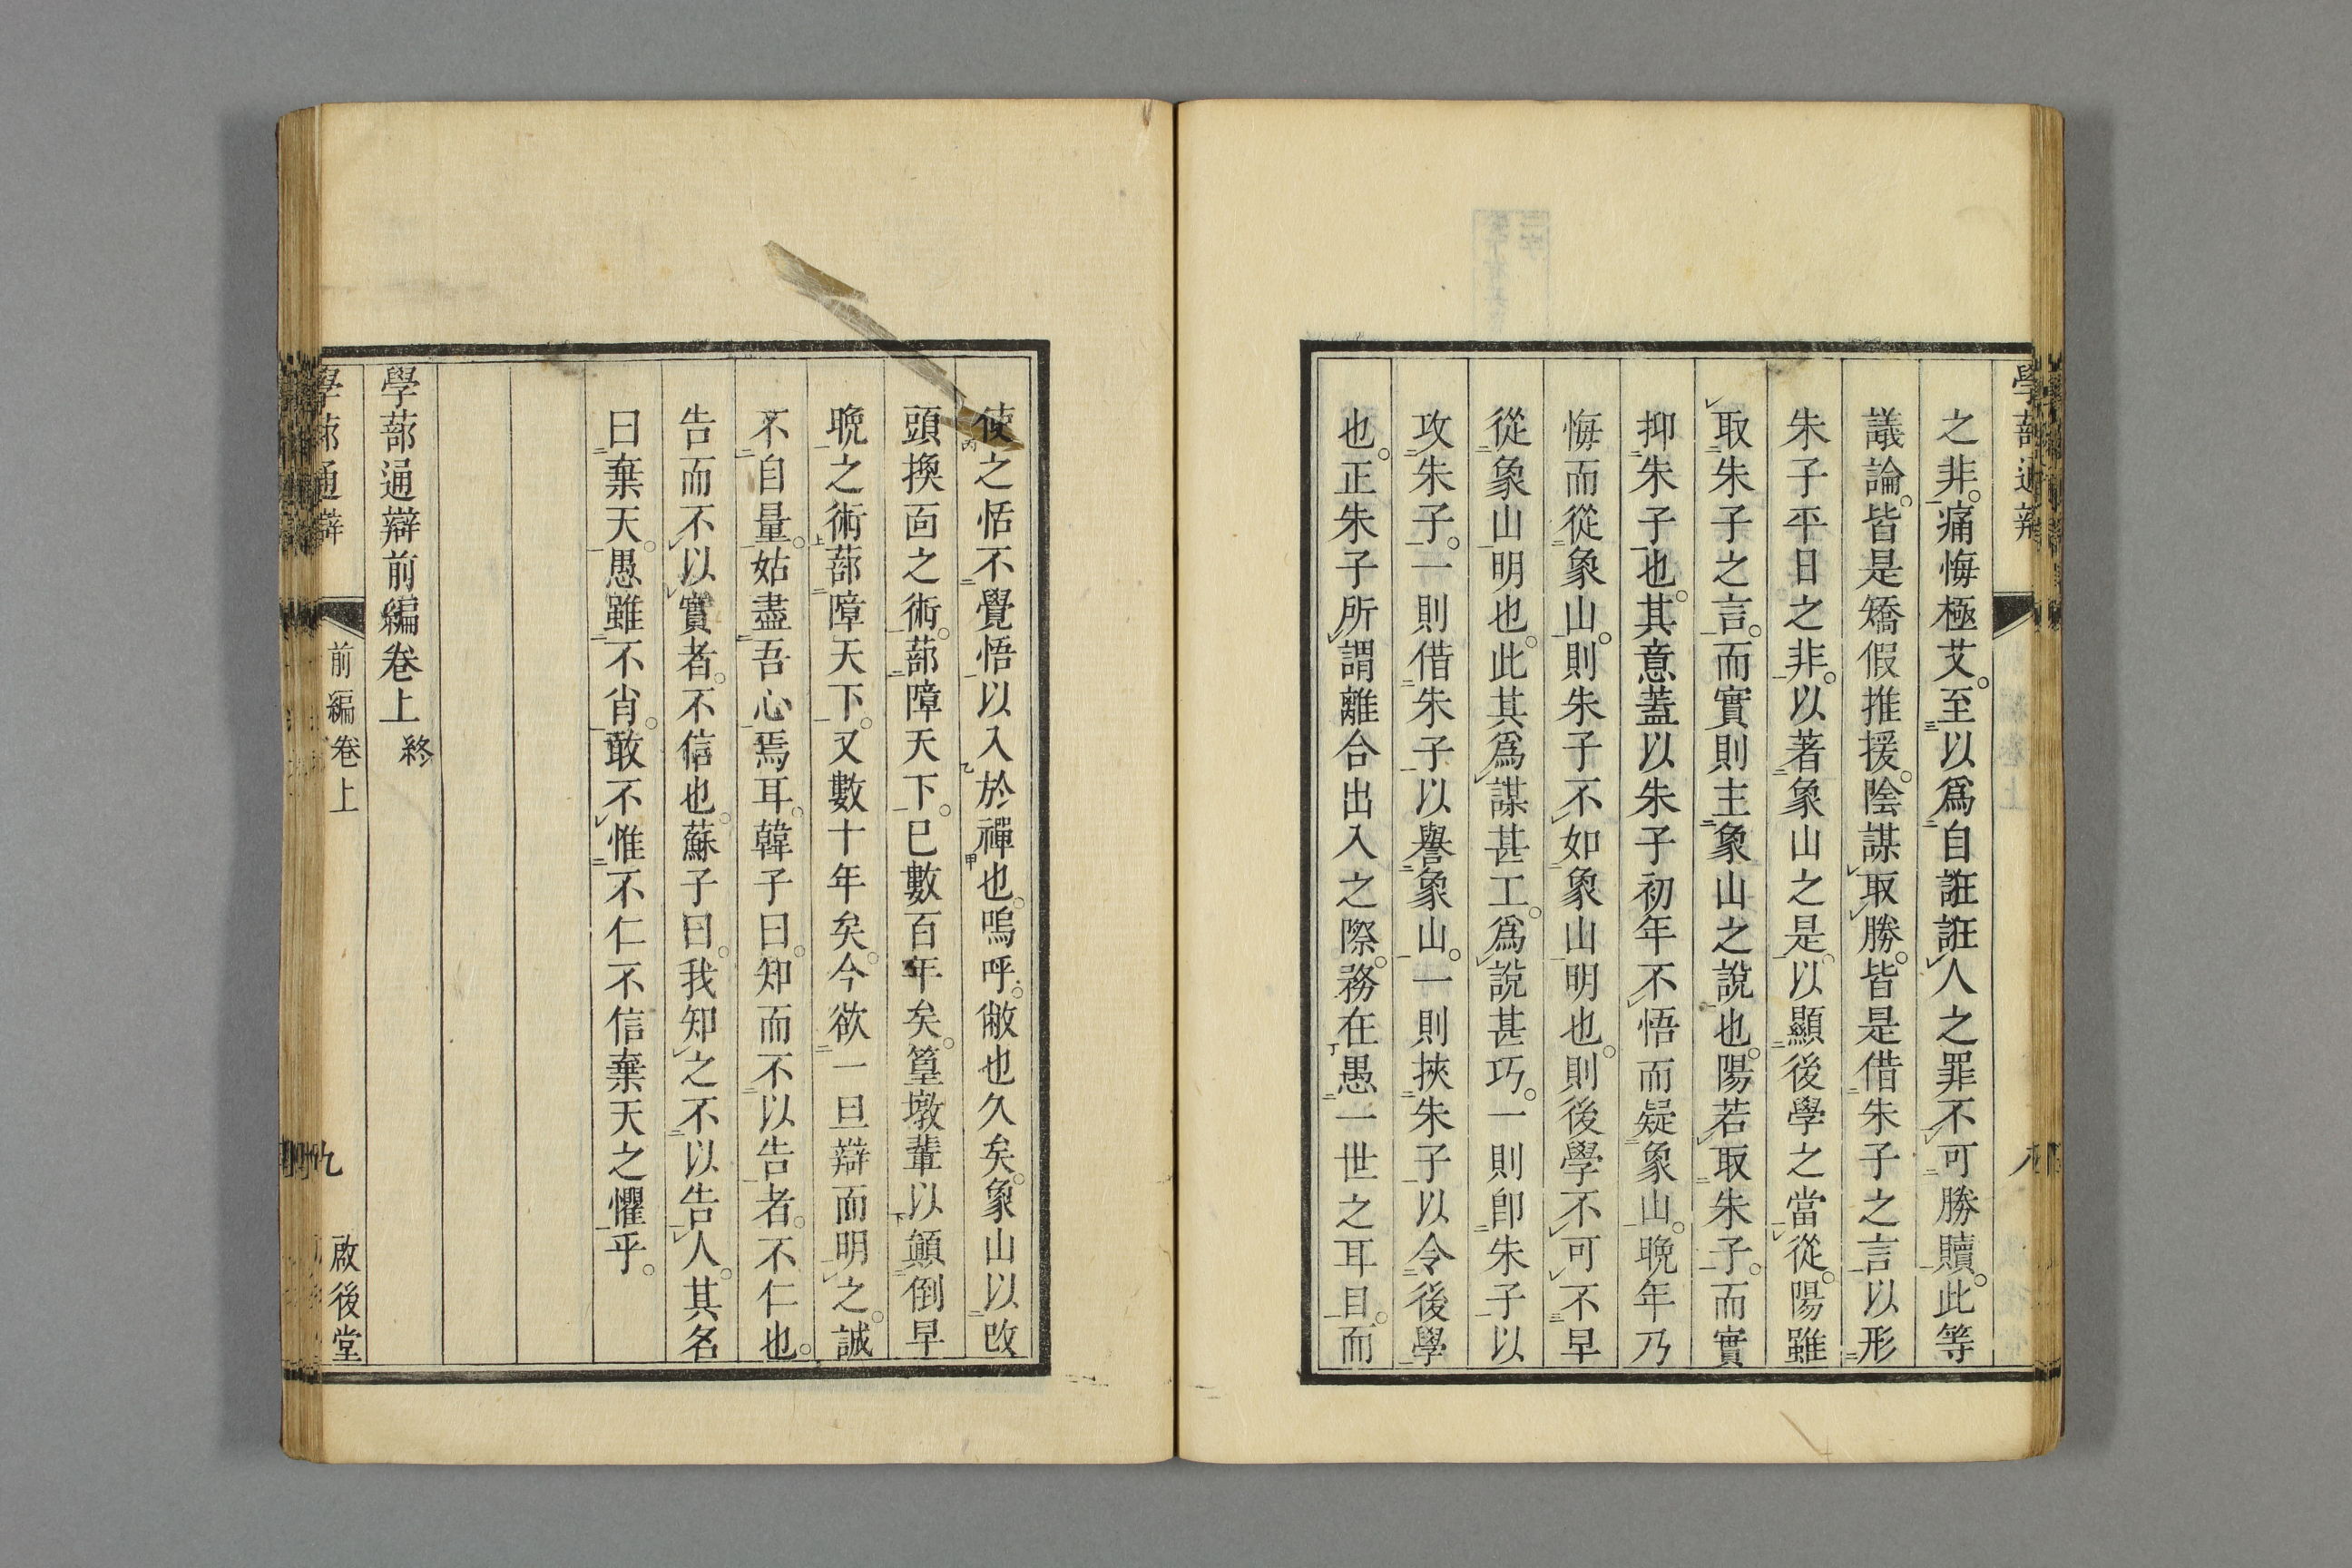 學蔀通辨
之非。痛悔極艾。至以爲自誑誑人之罪不可勝贖。此等
議論。皆是矯假推援。陰謀取勝。皆是借朱子之言以形
朱子平日之非。以著象山之是。以顯後學之當從。陽雖
取朱子之言。而實則主象山之說也。陽若取朱子。而實
抑朱子也。其意蓋以朱子初年不悟而疑象山。晚年乃
悔而從象山。則朱子不如象山明也。則後學不可不早
從象山明也。此其爲謀甚工。爲說甚巧。一則卽朱子以
攻朱子。一則借朱子以譽象山。一則挾朱子以令後學
也。正朱子所謂離合出入之際。務在愚一世之耳目。而
使之恬不覺悟以入於禪也。嗚呼。敝也久矣。象山以改
頭換面之術。蔀障天下。已數百年矣。篁墩輩以顛倒早
晚之術蔀障天下。又數十年矣。今欲一旦辯而明之。誠
不自量。姑盡吾心焉耳。韓子曰。知而不以告者。不仁也。
告而不以實者。不信也。蘇子曰。我知之不以告人。其名
曰棄天。愚雖不肖。敢不惟不仁不信棄天之懼乎。
學蔀通辯前編卷上 終
學蔀通辯 前編卷上 九 啟後堂